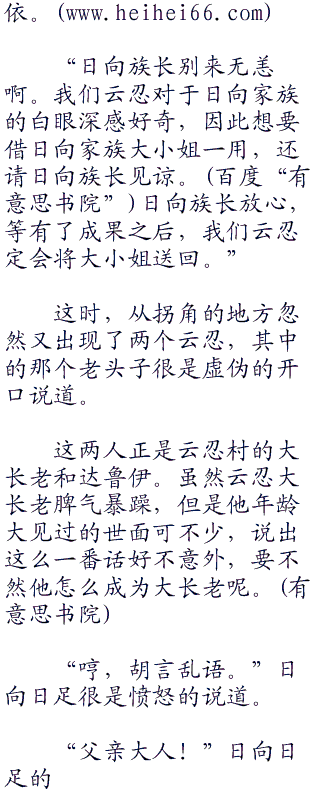 依。(www.heihei66.com)
“日向族长别来无恙
啊。我们云忍对于日向家族
的白眼深感好奇，因此想要
借日向家族大小姐一用，还
请日向族长见谅。(百度“有
意思书院”)日向族长放心，
等有了成果之后，我们云忍
定会将大小姐送回。”
这时，从拐角的地方忽
然又出现了两个云忍，其中
的那个老头子很是虚伪的开
口说道。
这两人正是云忍村的大
长老和达鲁伊。虽然云忍大
长老脾气暴躁，但是他年龄
大见过的世面可不少，说出
这么一番话好不意外，要不
然他怎么成为大长老呢。(有
意思书院)
“哼，胡言乱语。”日
向日足很是愤怒的说道。
“父亲大人！”日向日
足的